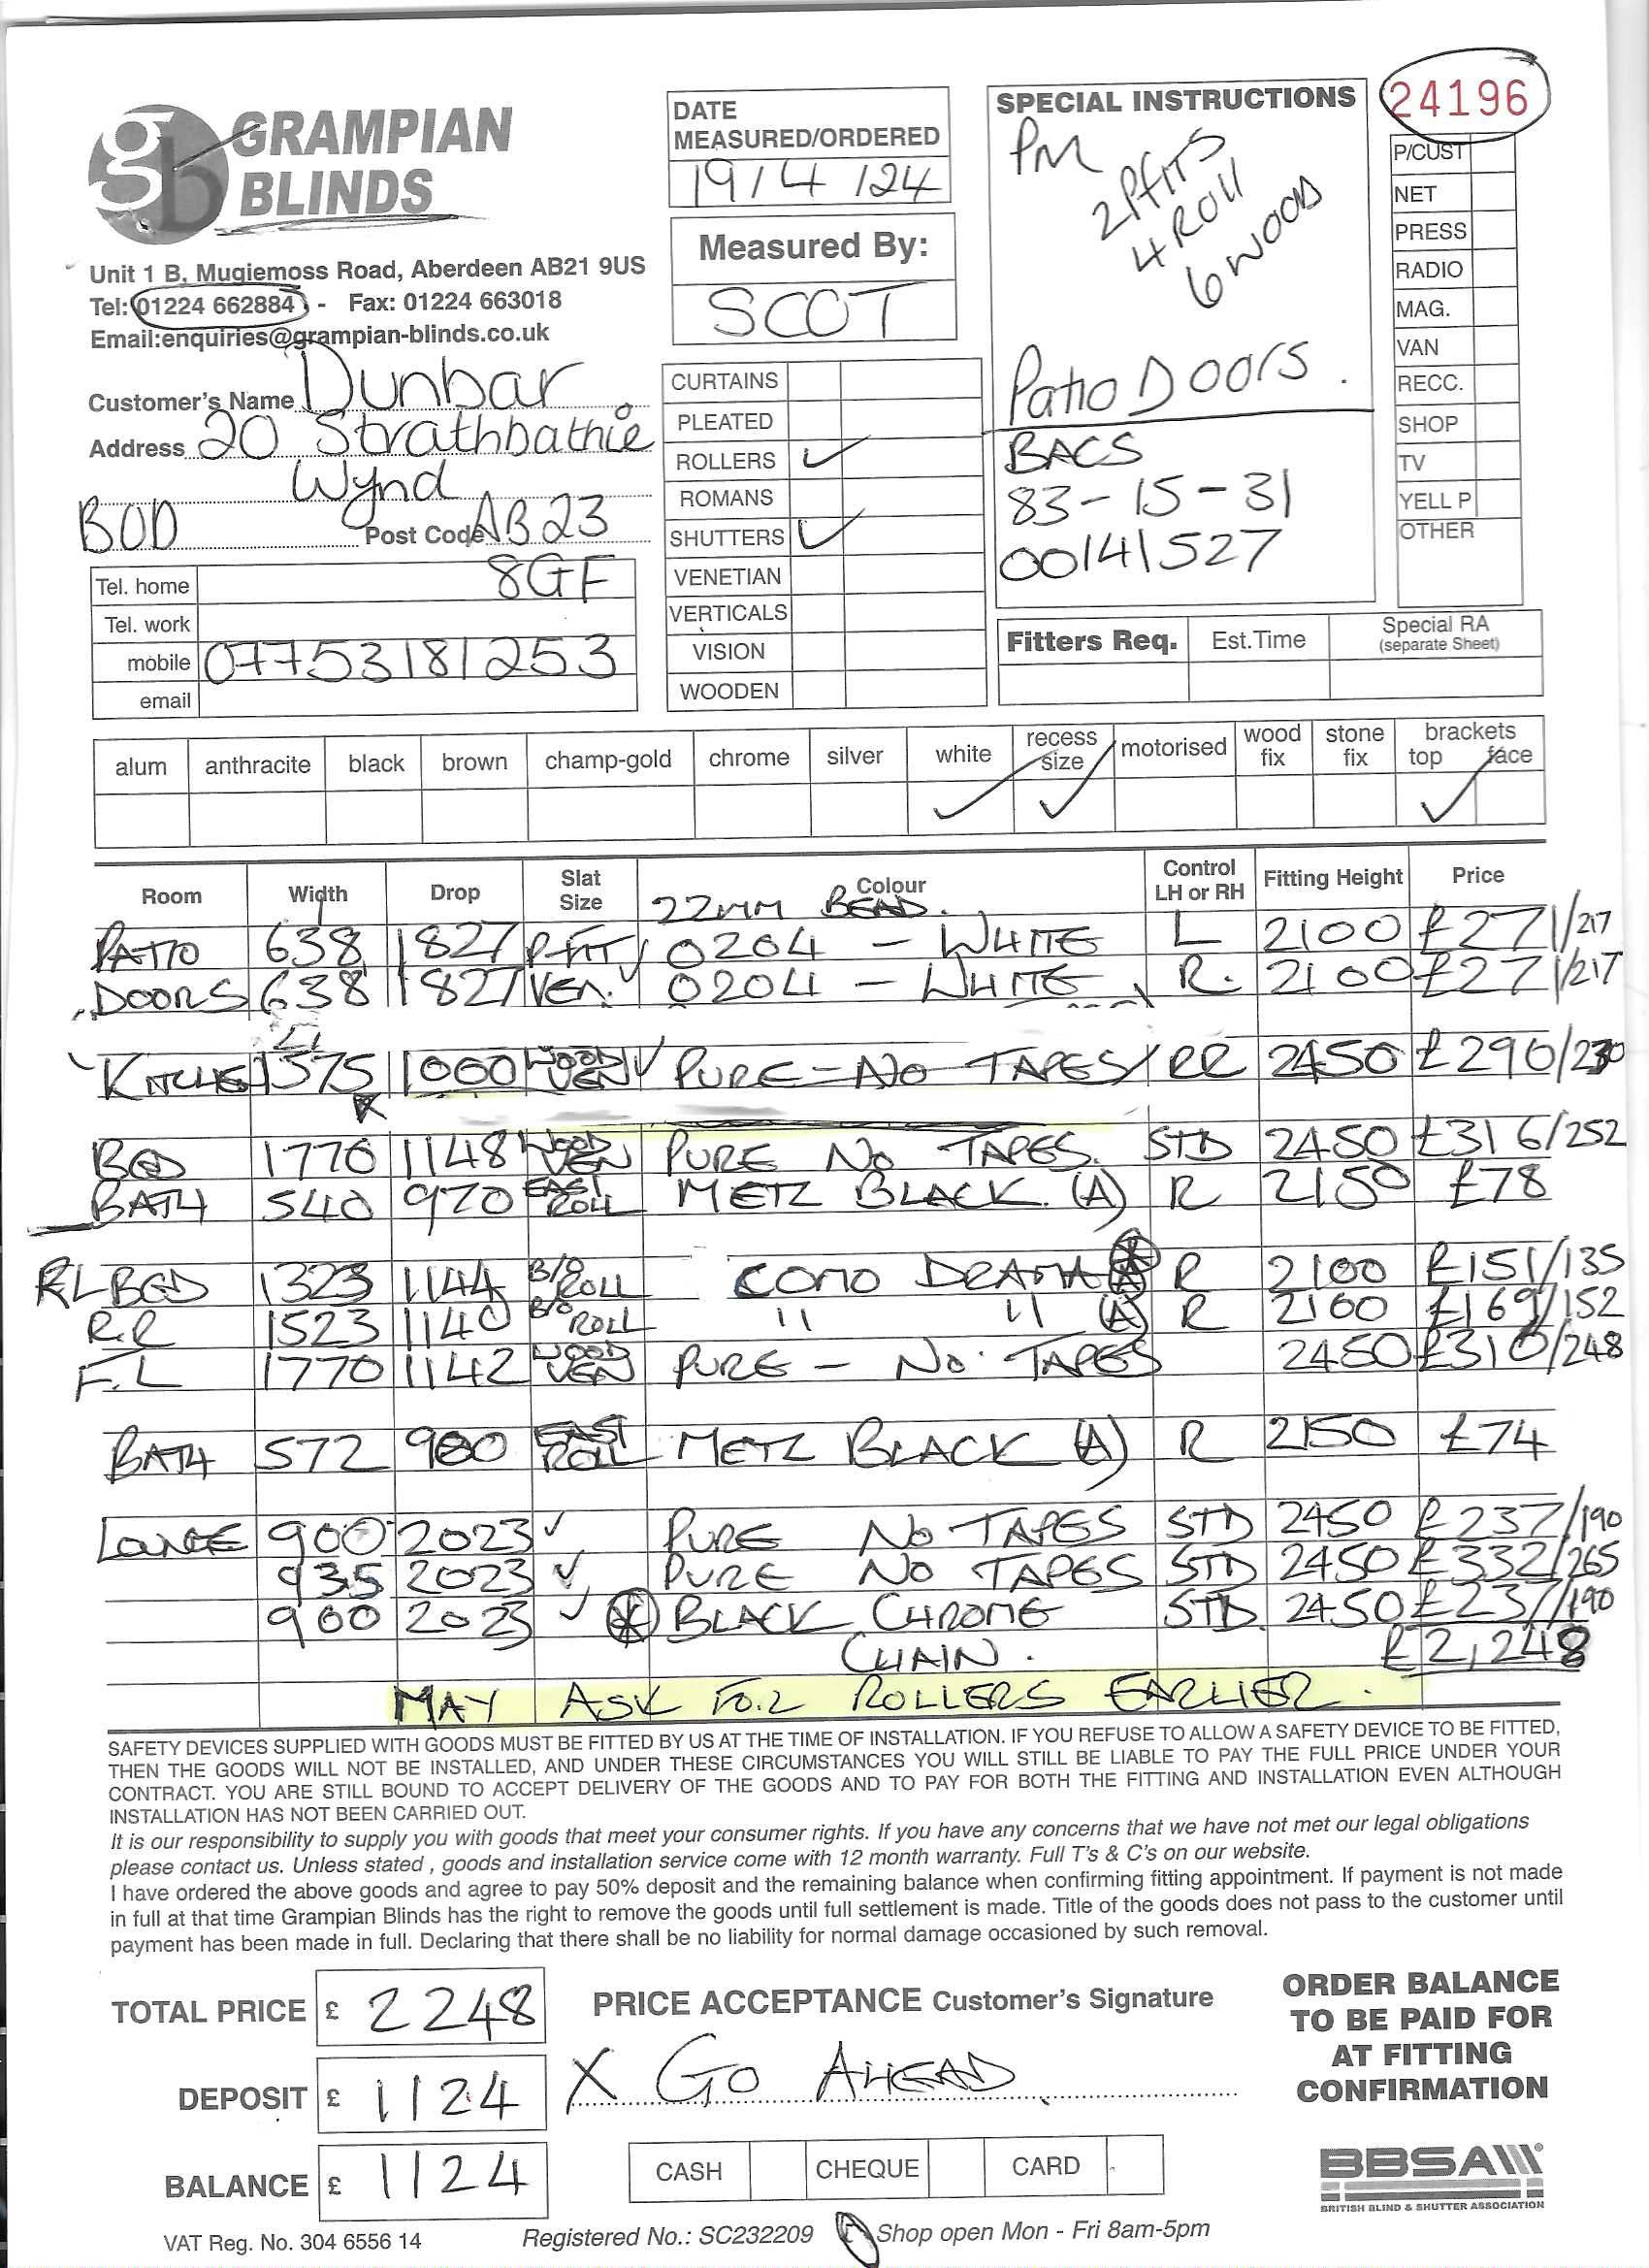 GRAMPIAN
BLINDS
Unit 1 B, Mugiemoss Road, Aberdeen AB21 9US
Tel: 01224 662884 - Fax: 01224 663018
Email:enquiries@grampian-blinds.co.uk
DATE
MEASURED/ORDERED
19/4/24
Measured By:
SCOT
SPECIAL INSTRUCTIONS
PM
2 PFITS
4 ROLL
6 WOODS
Patio Doors.
BACS
83-15-31
00141527
24196
P/CUST
NET
PRESS
RADIO
MAG.
VAN
RECC.
SHOP
TV
YELL P
OTHER
Customer's Name Dunbar
Address 20 Strathbathie
Wynd
BOD Post Code AB23
8GF
Tel. home
Tel. work
mobile 07753181253
email
CURTAINS
PLEATED
ROLLERS ✓
ROMANS
SHUTTERS ✓
VENETIAN
VERTICALS
VISION
WOODEN
Fitters Req. Est.Time Special RA
(separate Sheet)
alum anthracite black brown champ-gold chrome silver white recess size motorised wood fix stone fix brackets top face
✓ ✓ ✓
Room Width Drop Slat Size Colour Control LH or RH Fitting Height Price
22MM BEAD.
PATIO 638 1827 P-FIT/ 0204 - WHITE L 2100 £271/217
DOORS 638 1827 VEN. 0204 - WHITE R. 2100 £271/217
KITCHEN 1575 1000 WOOD VEN PURE - NO TAPES/ RR 2450 £290/230
BED 1770 1148 WOOD VEN PURE NO TAPES. STD 2450 £316/252
BATH 540 970 EAST ROLL METZ BLACK (A) R 2150 £78
RL BED 1323 1144 B/O ROLL COMO DRAMA R 2100 £151/135
R.R 1523 1140 B/O ROLL " " (A) R 2100 £169/152
F.L 1770 1142 WOOD VEN PURE - NO TAPES 2450 £310/248
BATH 572 980 EAST ROLL METZ BLACK (A) R 2150 £74
LOUNGE 900 2023 ✓ PURE NO TAPES STD 2450 £237/190
935 2023 ✓ PURE NO TAPES STD 2450 £332/265
900 2023 ✓ BLACK CHROME STD. 2450 £237/190
CHAIN. £2,248
MAY ASK FOR ROLLERS EARLIER.
SAFETY DEVICES SUPPLIED WITH GOODS MUST BE FITTED BY US AT THE TIME OF INSTALLATION. IF YOU REFUSE TO ALLOW A SAFETY DEVICE TO BE FITTED,
THEN THE GOODS WILL NOT BE INSTALLED, AND UNDER THESE CIRCUMSTANCES YOU WILL STILL BE LIABLE TO PAY THE FULL PRICE UNDER YOUR
CONTRACT. YOU ARE STILL BOUND TO ACCEPT DELIVERY OF THE GOODS AND TO PAY FOR BOTH THE FITTING AND INSTALLATION EVEN ALTHOUGH
INSTALLATION HAS NOT BEEN CARRIED OUT.
It is our responsibility to supply you with goods that meet your consumer rights. If you have any concerns that we have not met our legal obligations
please contact us. Unless stated , goods and installation service come with 12 month warranty. Full T's & C's on our website.
I have ordered the above goods and agree to pay 50% deposit and the remaining balance when confirming fitting appointment. If payment is not made
in full at that time Grampian Blinds has the right to remove the goods until full settlement is made. Title of the goods does not pass to the customer until
payment has been made in full. Declaring that there shall be no liability for normal damage occasioned by such removal.
TOTAL PRICE £ 2248
DEPOSIT £ 1124
BALANCE £ 1124
PRICE ACCEPTANCE Customer's Signature
X GO AHEAD
CASH CHEQUE CARD
ORDER BALANCE
TO BE PAID FOR
AT FITTING
CONFIRMATION
BBSA
BRITISH BLIND & SHUTTER ASSOCIATION
VAT Reg. No. 304 6556 14 Registered No.: SC232209 Shop open Mon - Fri 8am-5pm